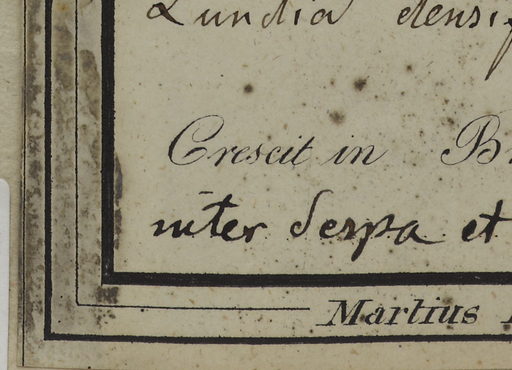 Lundia densif
Crescit in Br
inter Serpa et
Martius